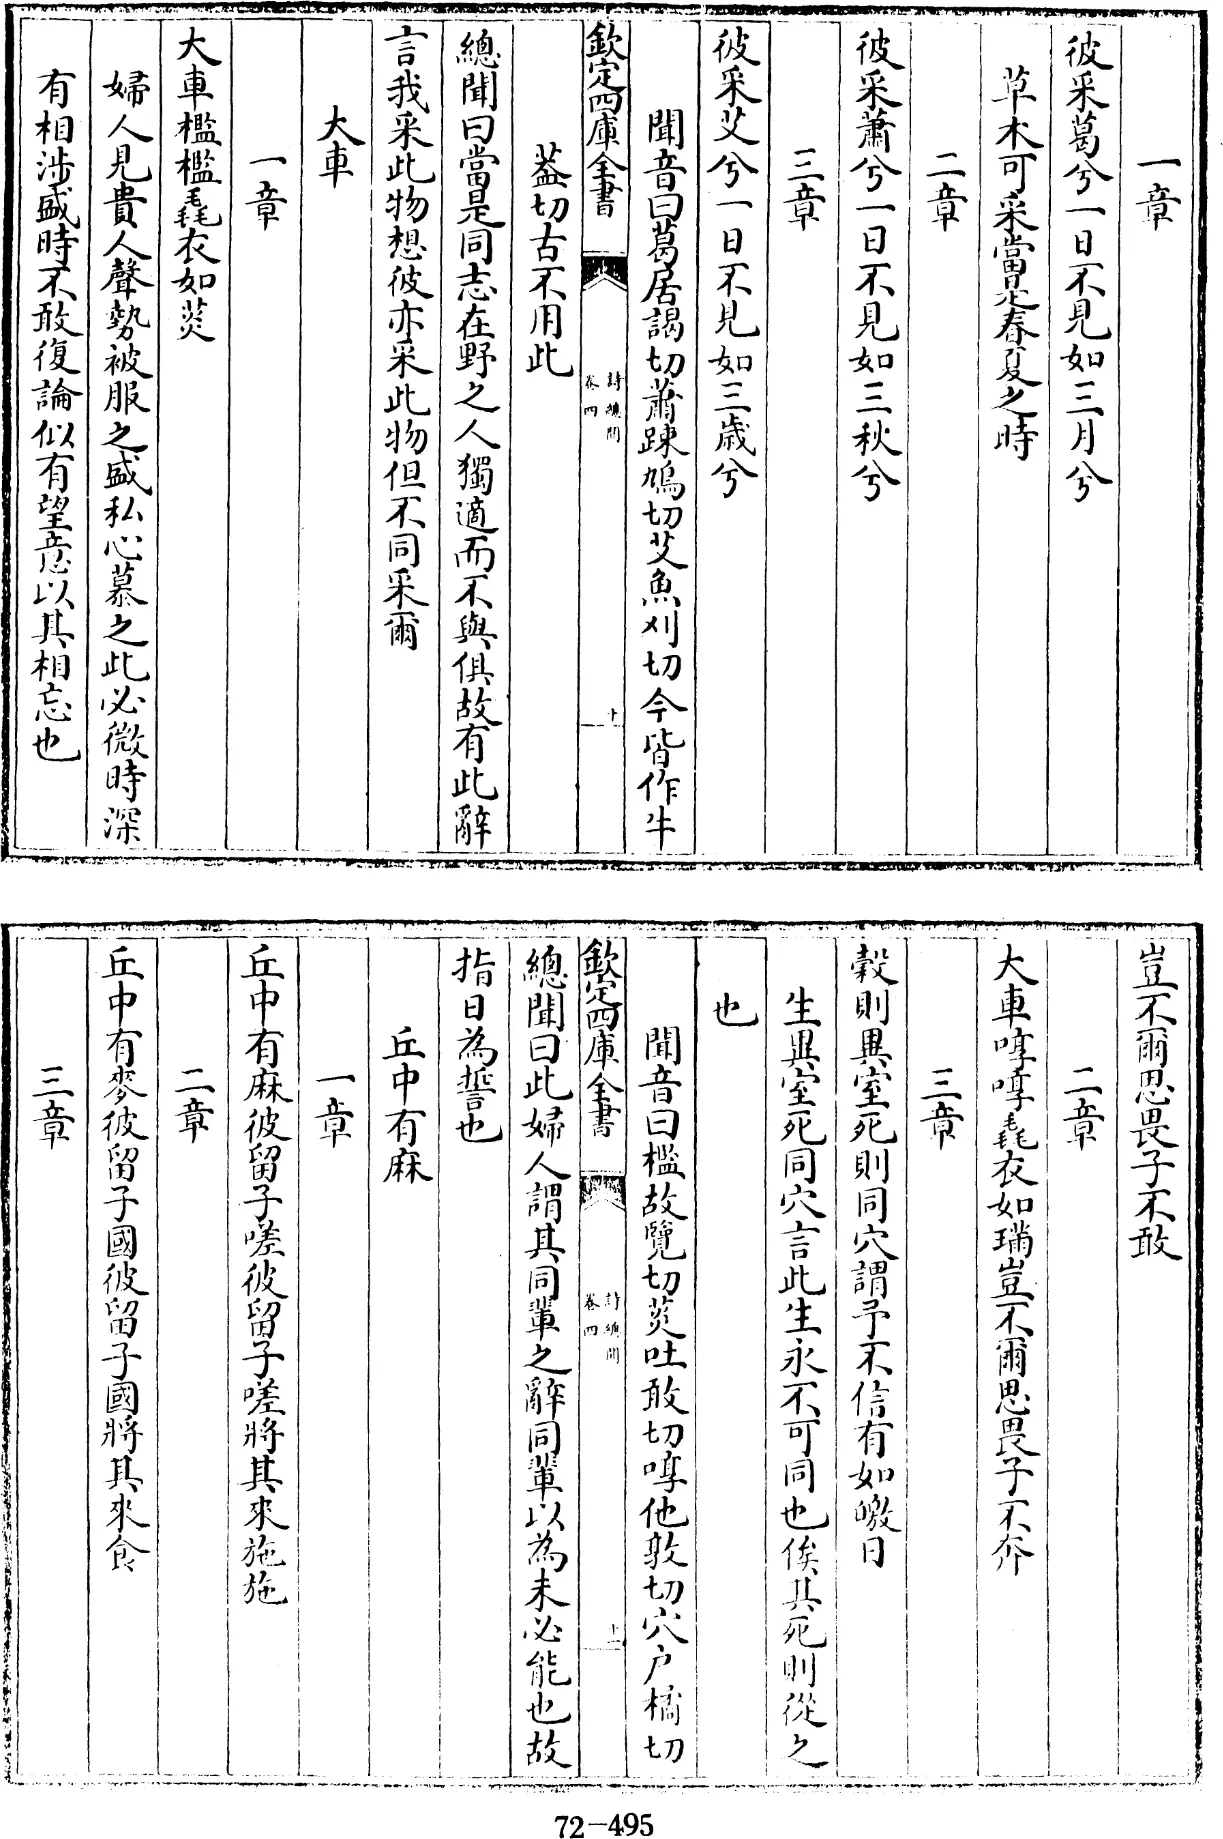 一章
彼采葛兮一日不見如三月兮
草木可采當是春夏之時
二章
彼采蕭兮一日不見如三秋兮
三章
彼采艾兮一日不見如三歲兮
聞音曰葛居謁切蕭踈鳩切艾魚刈切今皆作牛
欽定四庫全書
詩總聞
卷四
十
葢切古不用此
總聞曰當是同志在野之人獨適而不與俱故有此辭
言我采此物想彼亦采此物但不同采爾
大車
一章
大車檻檻毳衣如菼
婦人見貴人聲勢被服之盛私心慕之此必微時深
有相涉盛時不敢復論似有望意以其相忘也
豈不爾思畏子不敢
二章
大車啍啍毳衣如璊豈不爾思畏子不奔
三章
穀則異室死則同穴謂予不信有如皦日
生異室死同穴言此生永不可同也俟其死則從之
也
聞音曰檻故覽切菼吐敢切啍他敦切穴户橘切
欽定四庫全書
詩總聞
卷四
十一
總聞曰此婦人謂其同輩之辭同輩以為未必能也故
指日為誓也
丘中有麻
一章
丘中有麻彼留子嗟彼留子嗟將其來施施
二章
丘中有麥彼留子國彼留子國將其來食
三章
72-495